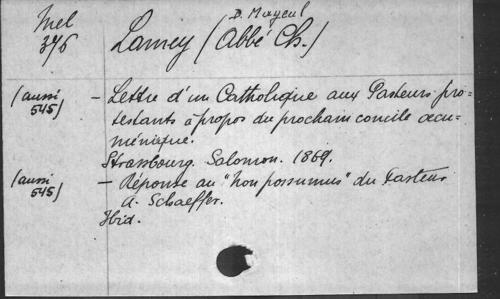 D. Mayeul
Mel
376
Lamey (Abbé Ch.)
(aussi
545)
- Lettre d'un Catholique aux Pasteurs pro-
testants à propos du prochain concile œcu-
ménique.
Strasbourg. Salomon. 1869.
(aussi
545)
- Réponse au "non possumus" du Pasteur
A. Schaeffer.
Ibid.